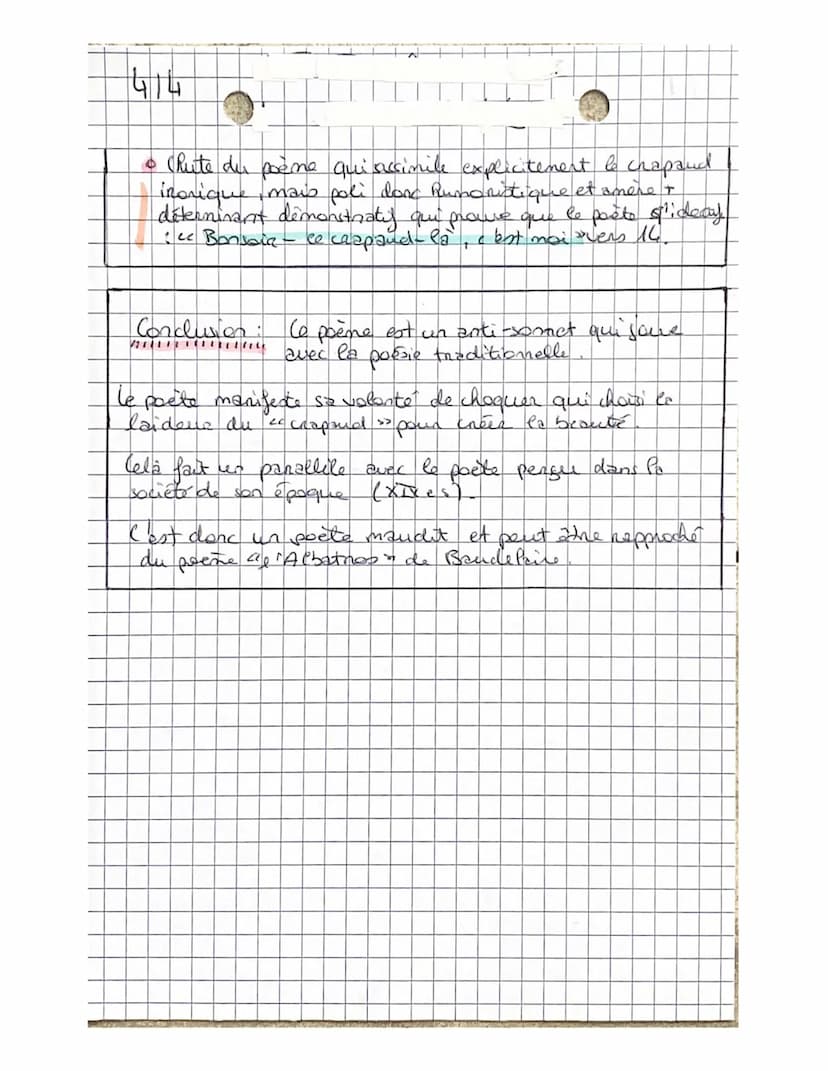 4/4
Chute du poème qui assimile explicitement le crapaud
ironique, mais poli donc humoristique et amère +
déterminant démonstratif qui prouve que le poète s'ident
: « Bonsoir – ce crapaud-là, c'est moi » vers 14.
Conclusion : Ce poème est un anti-sonnet qui joue
avec la poésie traditionnelle.
Le poète manifeste sa volonté de choquer qui choisi la
laideur du « crapaud » pour créer la beauté.
Celà fait un parallèle avec le poète perçu dans la
société de son époque (XIXes).
C'est donc un poète maudit et peut être rapproché
du poème « l'Albatros » de Baudelaire.